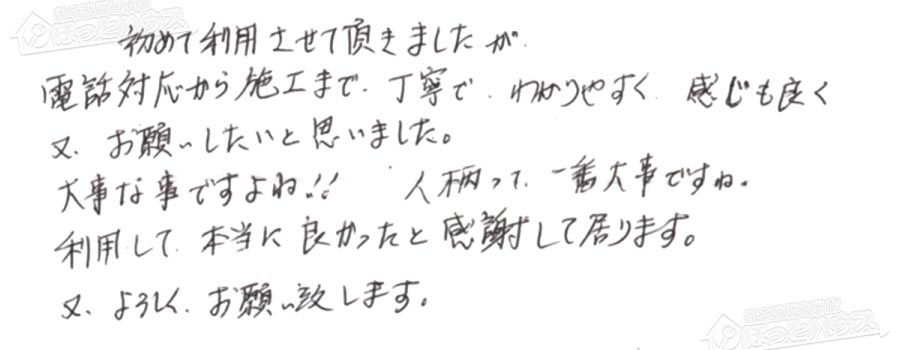 初めて利用させて頂きましたが、
電話対応から施工まで、丁寧で、わかりやすく、感じも良く
又、お願いしたいと思いました。
大事な事ですよね!! 人柄って、一番大事ですね。
利用して、本当に良かったと感謝して居ります。
又、よろしく、お願い致します。
ほっとハウス
ほっとハウス